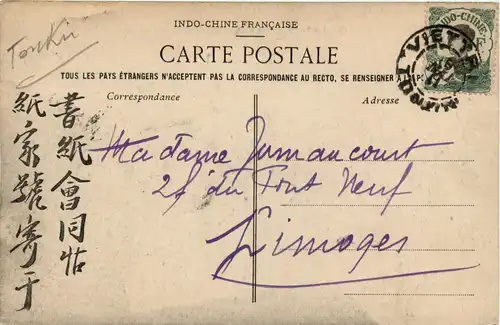 Tonkin
INDO-CHINE FRANÇAISE
CARTE POSTALE
TOUS LES PAYS ÉTRANGERS N'ACCEPTENT PAS LA CORRESPONDANCE AU RECTO, SE RENSEIGNER A
Correspondance
Adresse
書紙會同帖
紙家號寄于
Madame Jumaucourt
2 du Pont Neuf
Limoges
INDO-CHINE
VIETRI
TONKIN